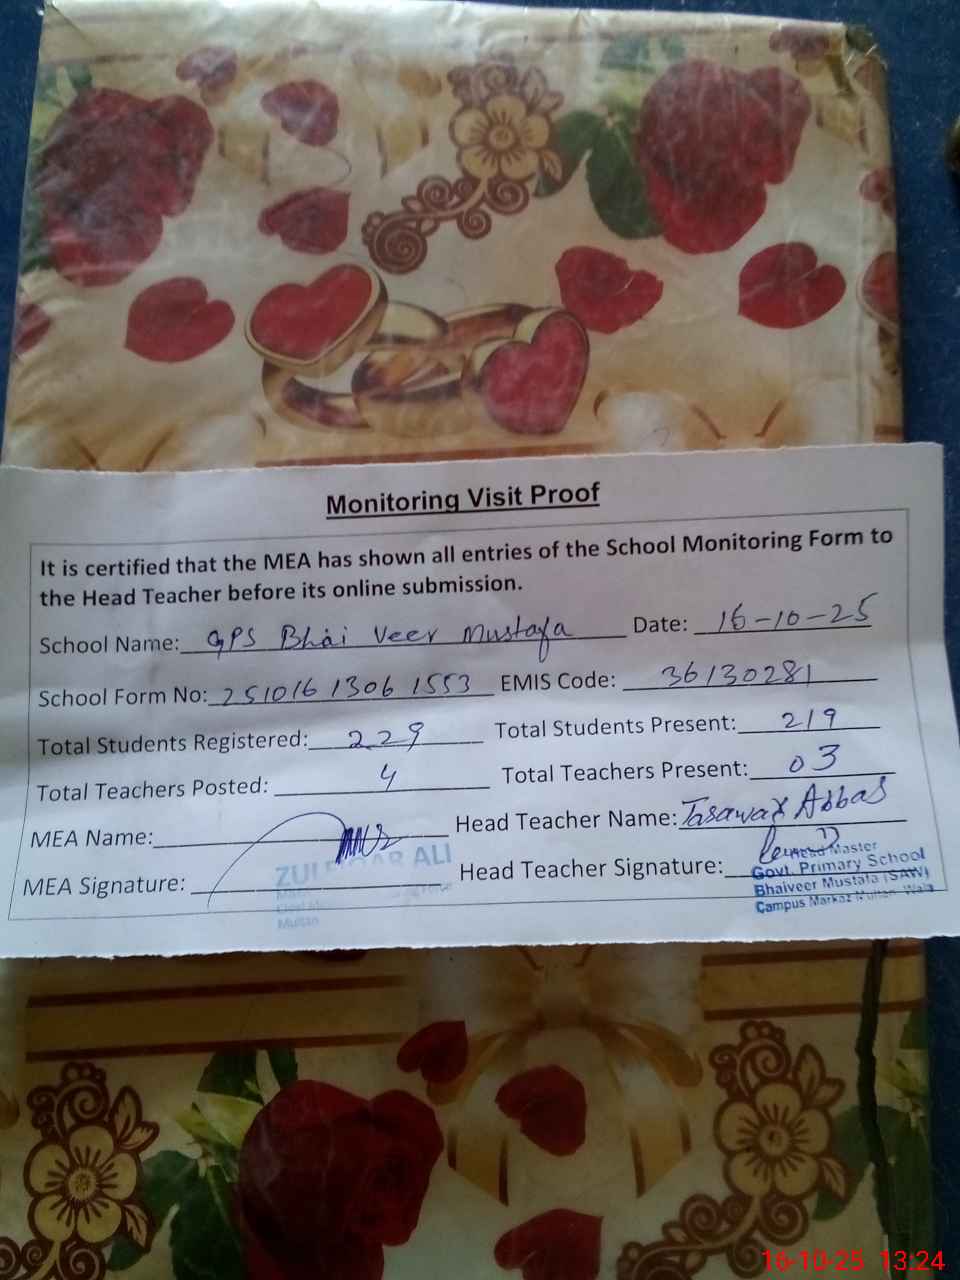 Monitoring Visit Proof
It is certified that the MEA has shown all entries of the School Monitoring Form to
the Head Teacher before its online submission.
School Name: GPS Bhai Veer Mustafa Date: 16-10-25
School Form No: 251016 1306 1553 EMIS Code: 36130281
Total Students Registered: 229 Total Students Present: 219
Total Teachers Posted: 4 Total Teachers Present: 03
MEA Name: Head Teacher Name: Tasawar Abbas
ALI
MEA Signature: Head Teacher Signature:
Head Master
Govt. Primary School
Bhaiveer Mustafa (SAW)
Campus Markaz Wala
Multan
16-10-25 13:24